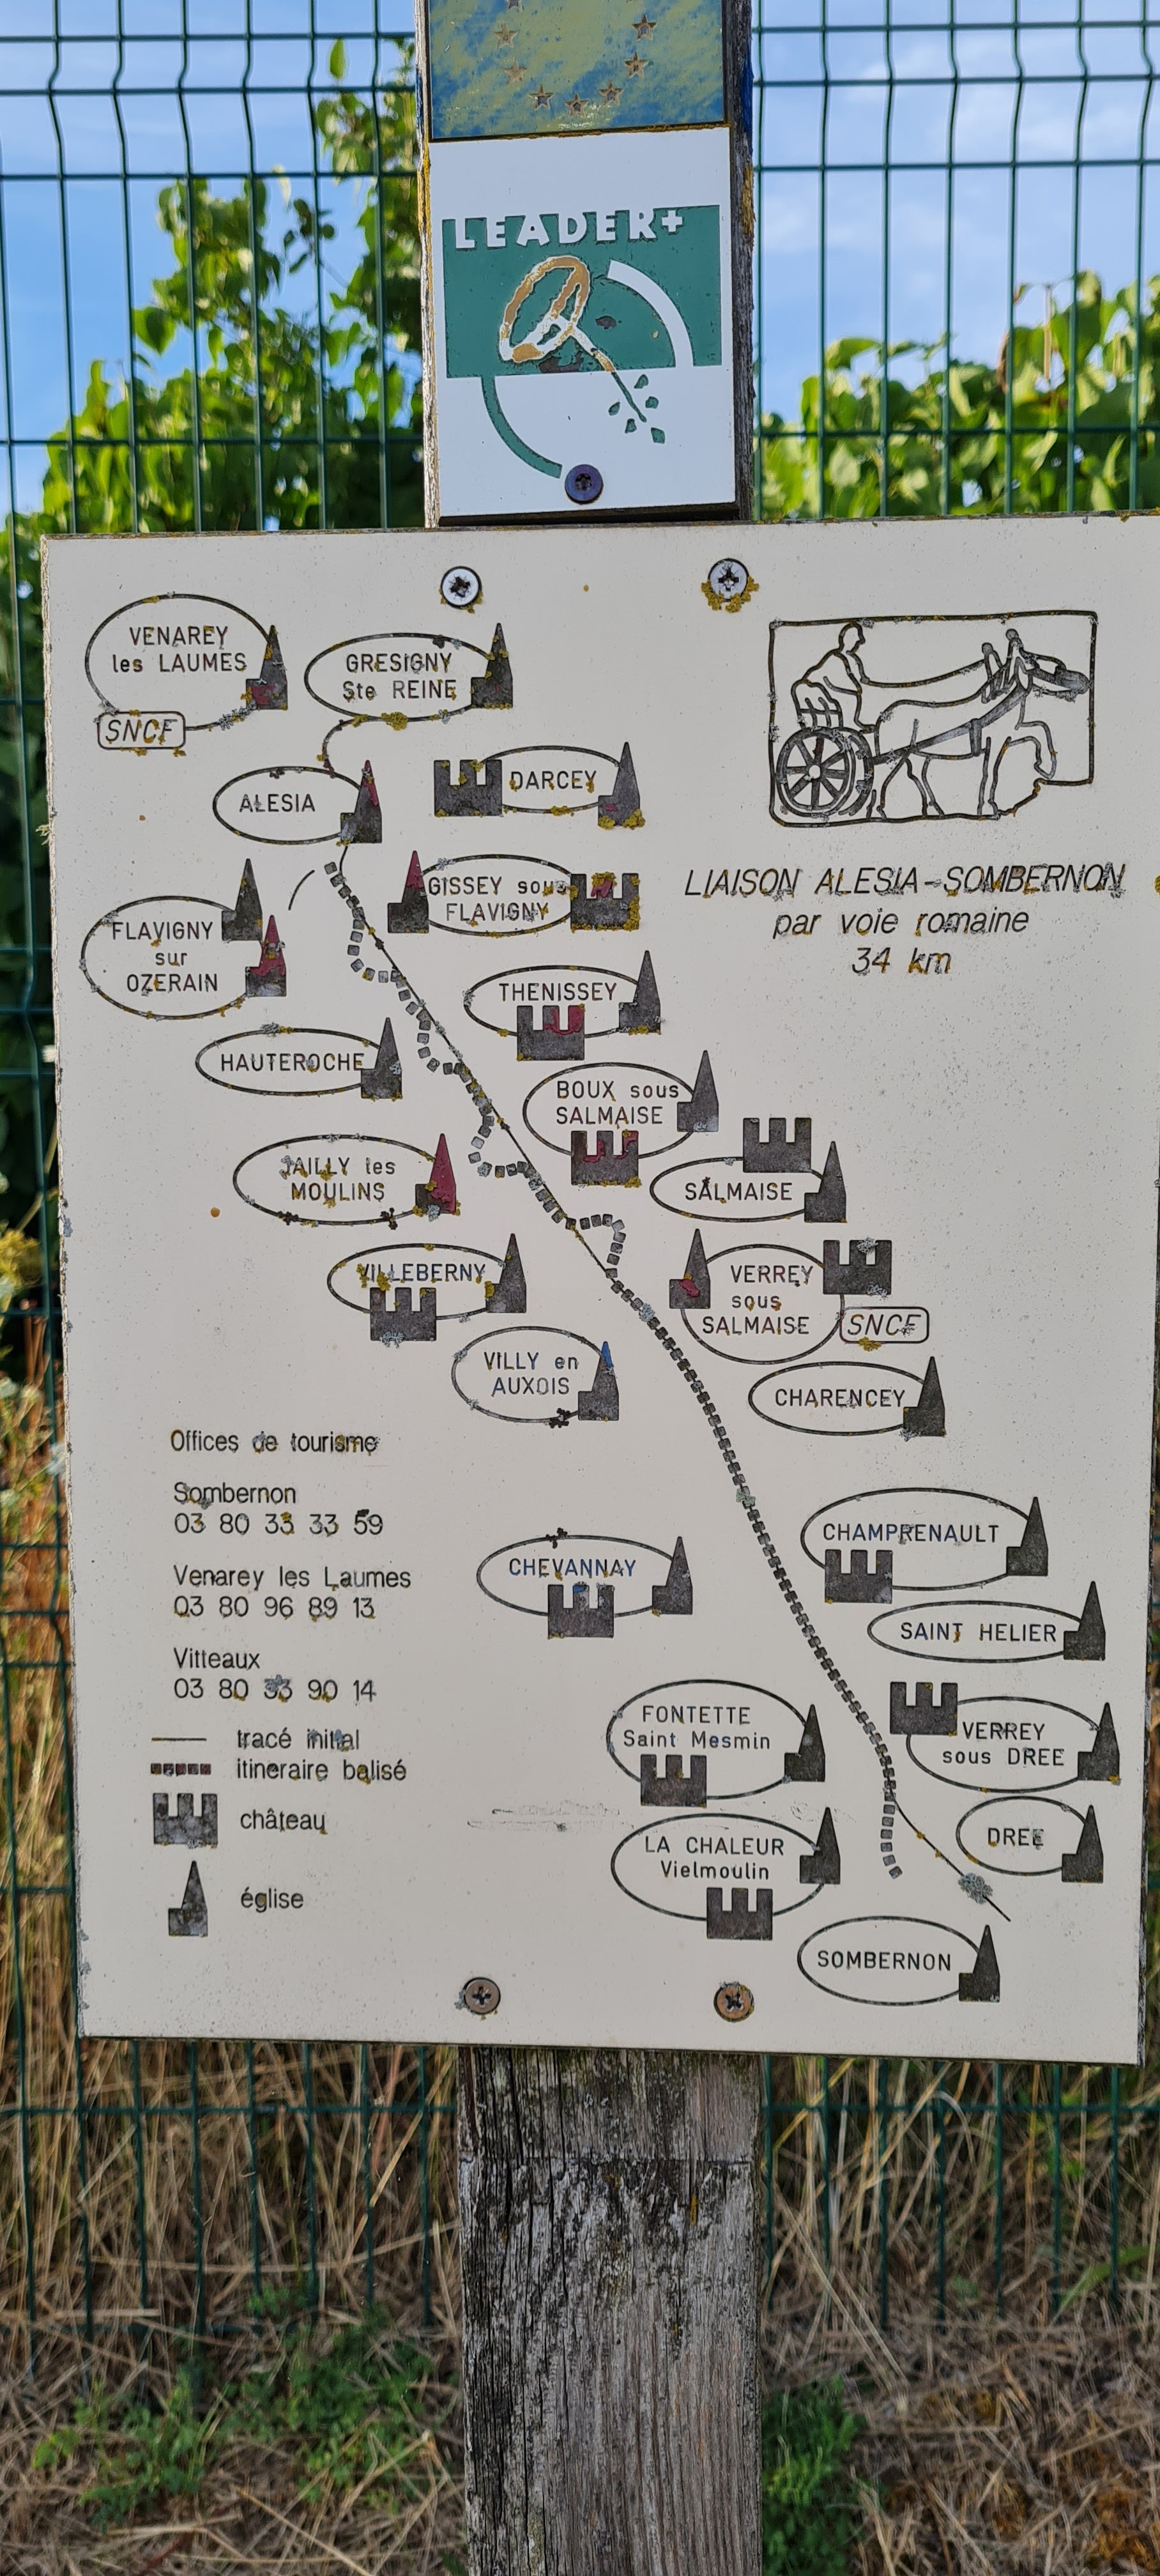 LEADER+
VENAREY
les LAUMES
SNCF
GRESIGNY
Ste REINE
ALESIA
DARCEY
GISSEY sous
FLAVIGNY
LIAISON ALESIA-SOMBERNON
par voie romaine
34 km
FLAVIGNY
sur
OZERAIN
THENISSEY
HAUTEROCHE
BOUX sous
SALMAISE
JAILLY les
MOULINS
SALMAISE
VILLEBERNY
VERREY
sous
SALMAISE
SNCF
VILLY en
AUXOIS
CHARENCEY
Offices de tourisme
Sombernon
03 80 33 33 59
Venarey les Laumes
03 80 96 89 13
Vitteaux
03 80 33 90 14
tracé initial
itineraire balisé
château
église
CHEVANNAY
CHAMPRENAULT
SAINT HELIER
FONTETTE
Saint Mesmin
VERREY
sous DREE
LA CHALEUR
Vielmoulin
DREE
SOMBERNON